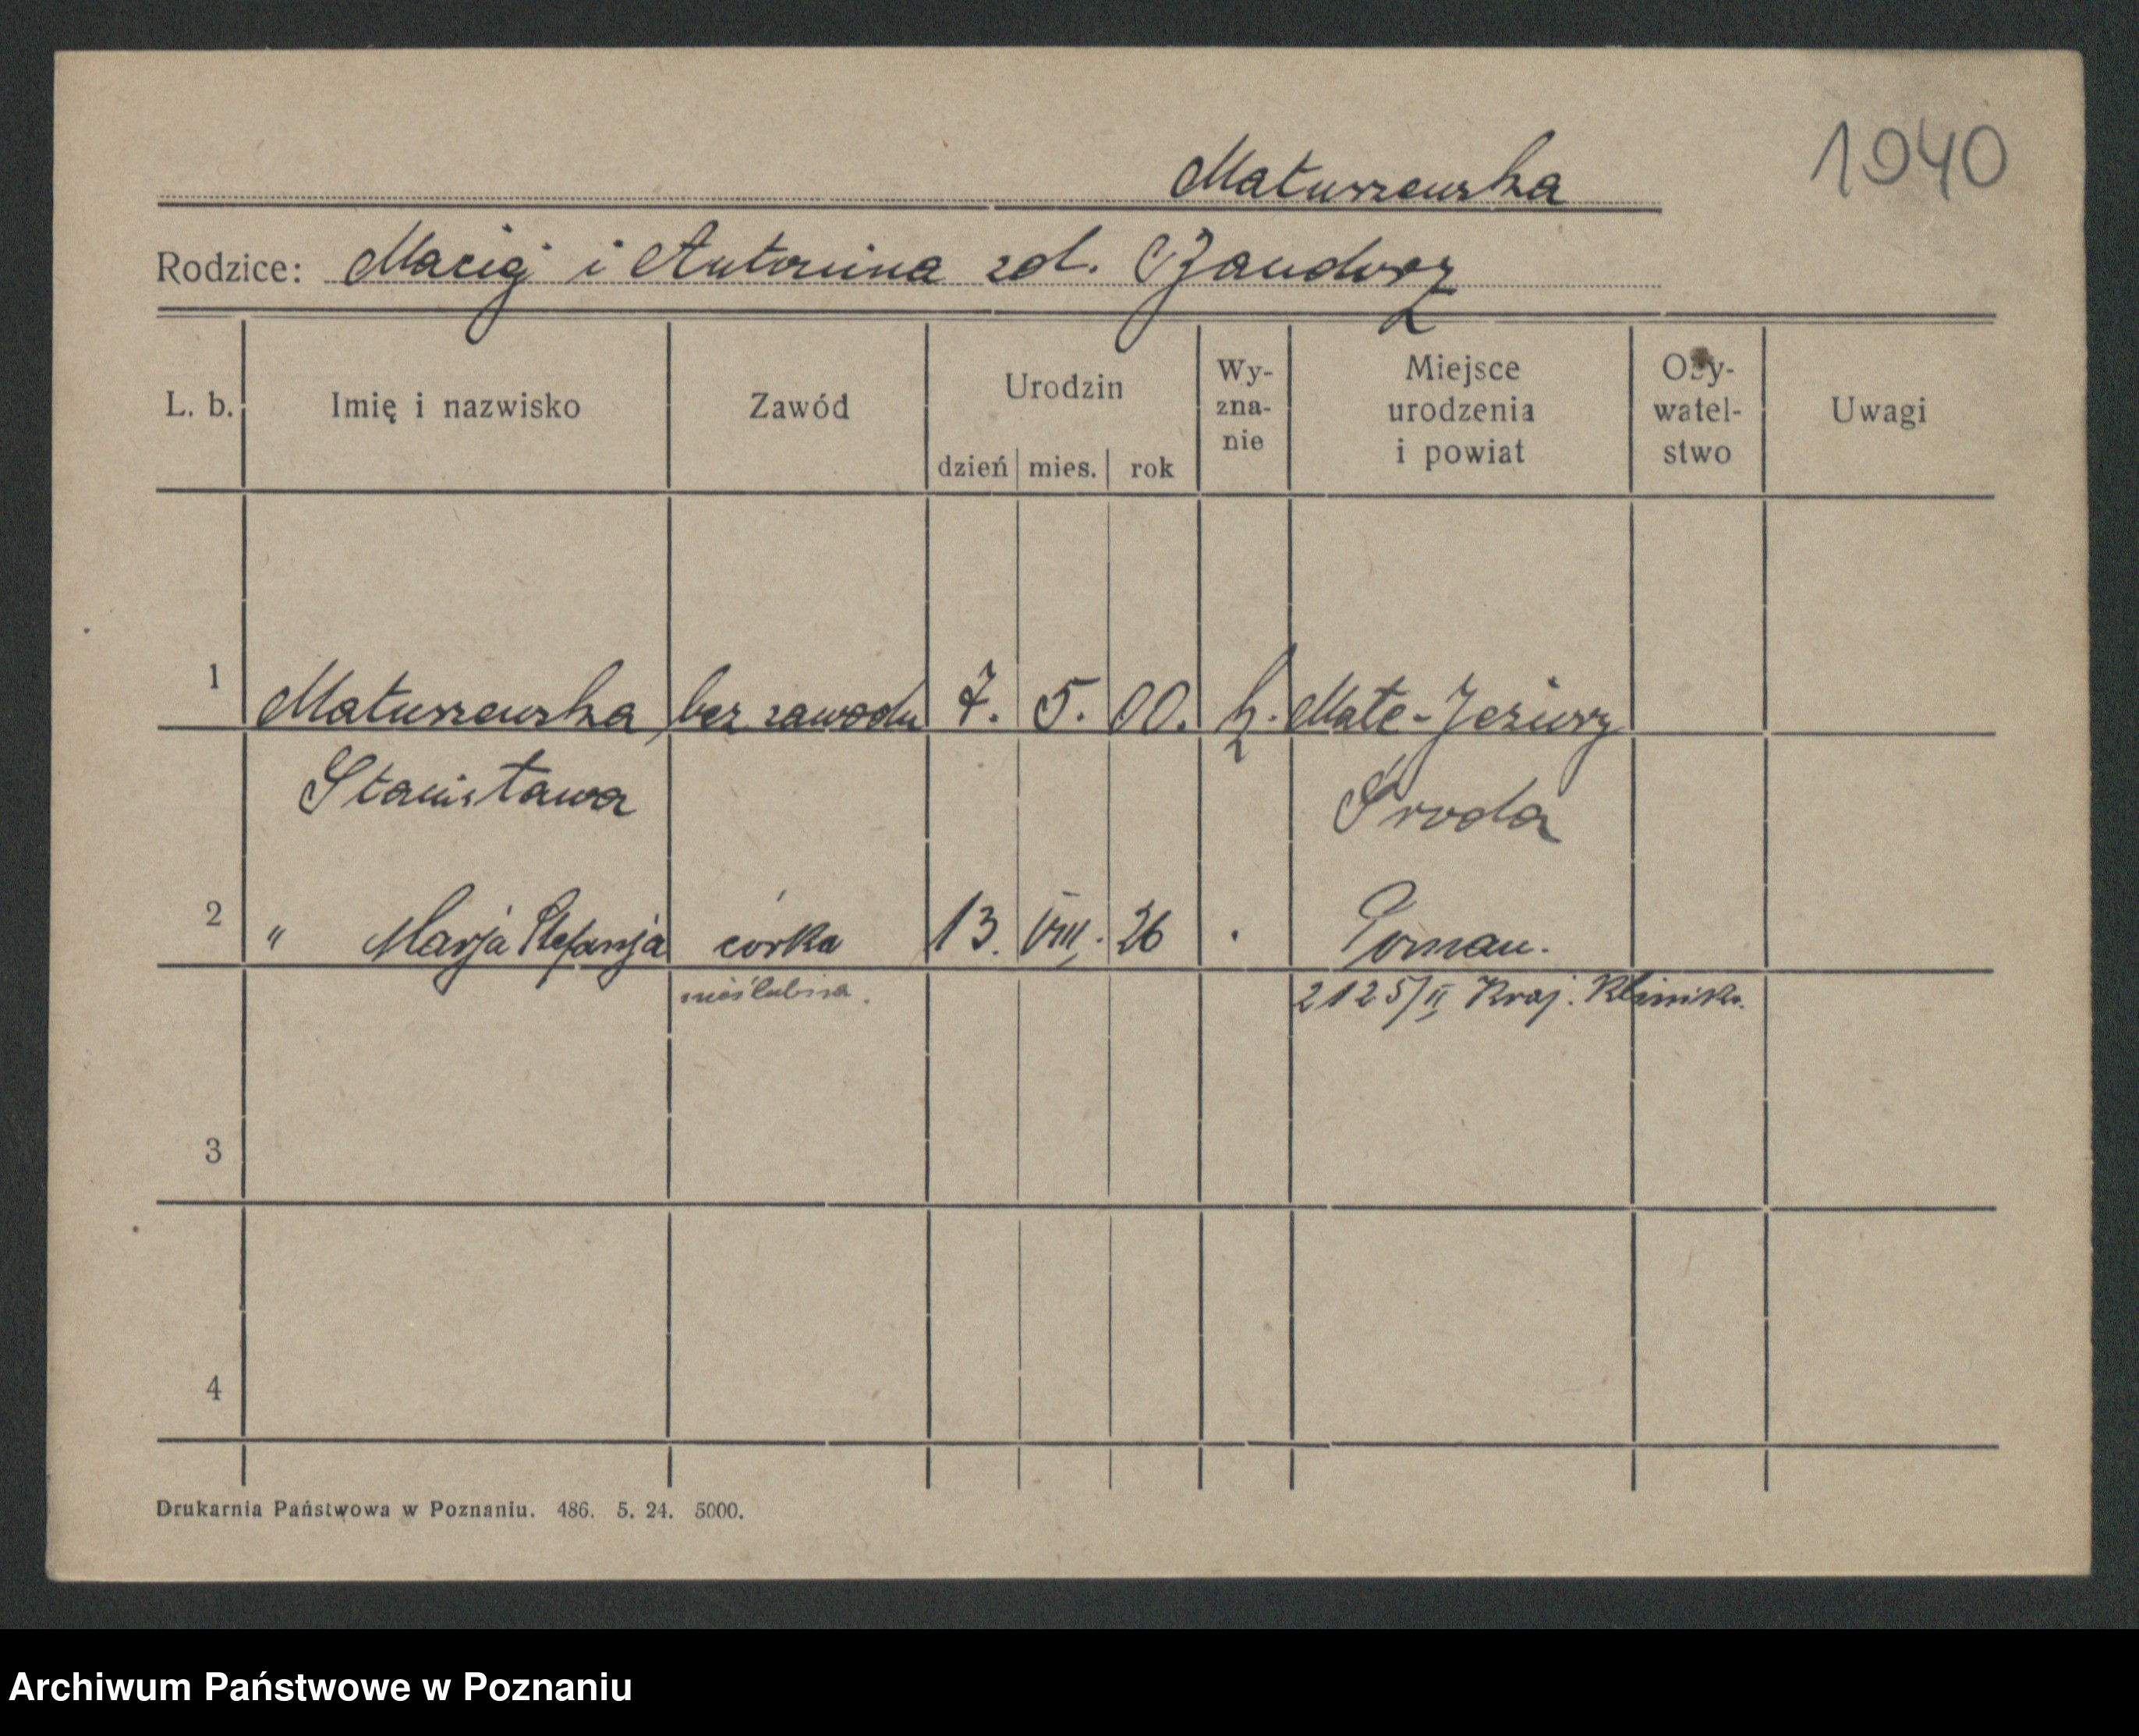 1940
Matuszewska
Rodzice: Maciej i Antonina zd.
L. b. Imię i nazwisko Zawód Urodzin dzień mies. rok Wy-zna-nie Miejsce urodzenia i powiat Oby-watel-stwo Uwagi
1 Matuszewska bez zawodu 7. 5. 00. k. Małe-Jeziory
Stanisława Środa
2 " Marja Stefanja córka 13. VIII. 26 Poznań.
nieślubna. 2125/II Kraj. Klinika.
3
4
Drukarnia Państwowa w Poznaniu. 486. 5. 24. 5000.
Archiwum Państwowe w Poznaniu